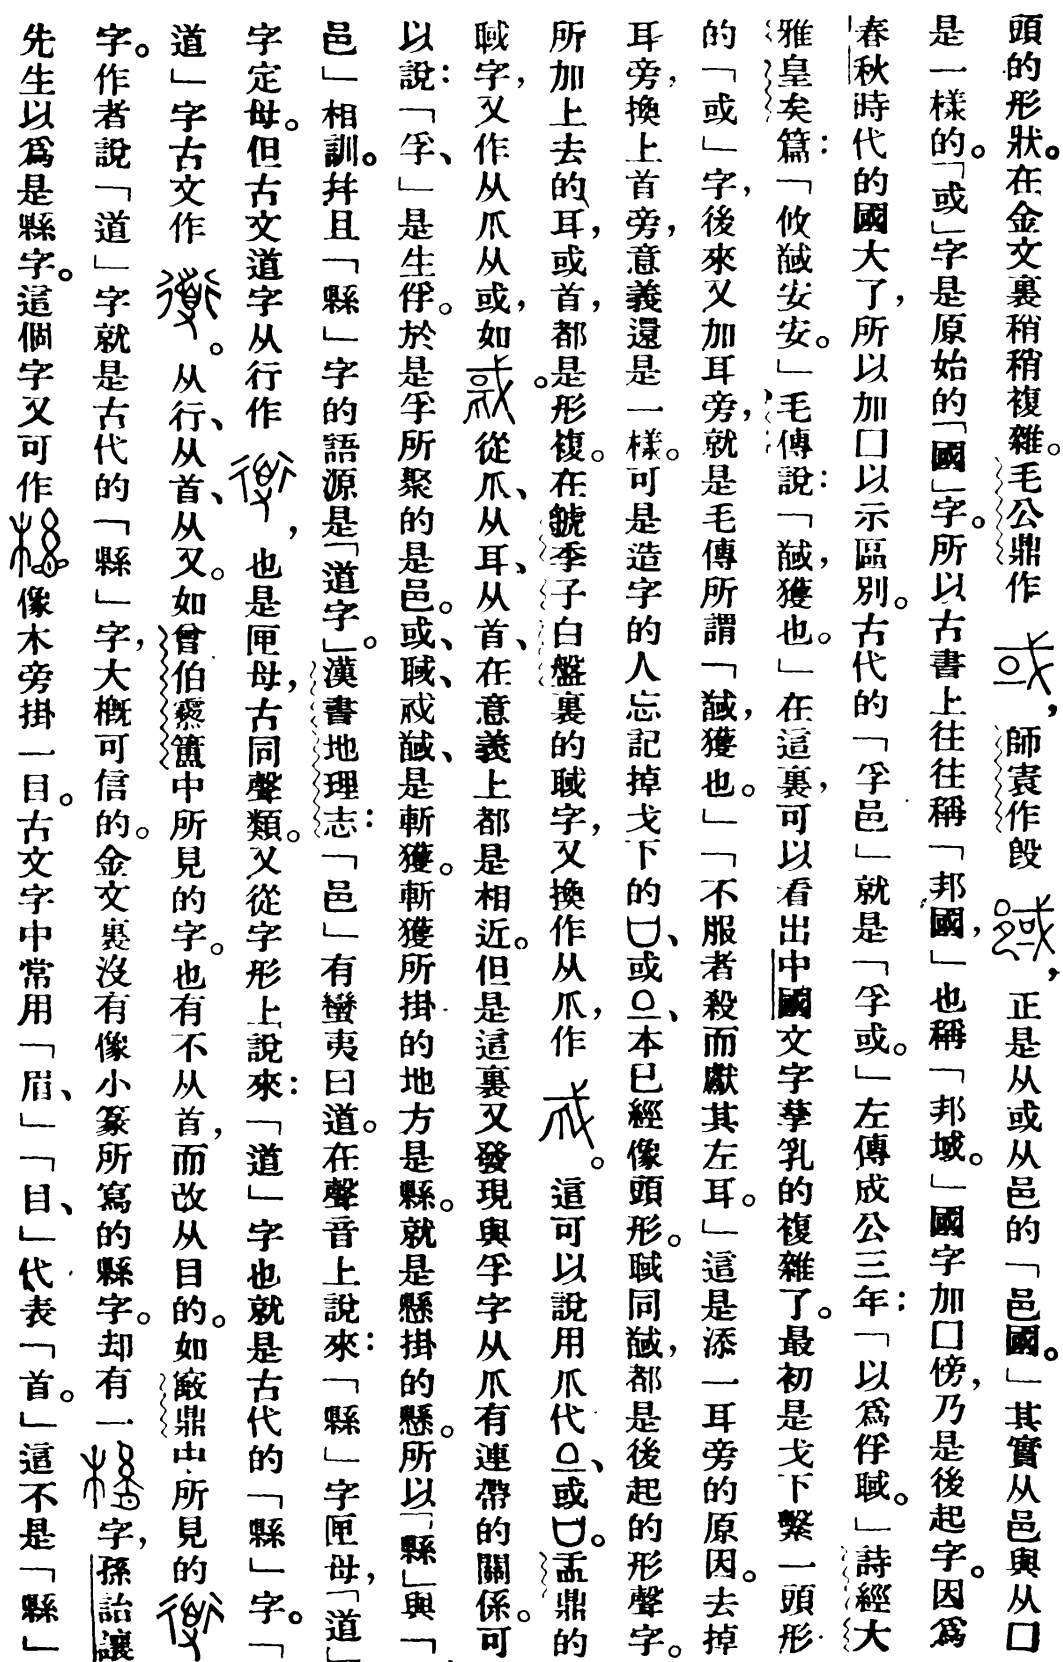 頭的形狀。在金文裏稍稍複雜。毛公鼎作，師㝨作毁，正是从或从邑的「邑國。」其實从邑與从囗
是一樣的。「或」字是原始的「國」字。所以古書上往往稱「邦國，」也稱「邦域。」國字加囗傍，乃是後起字。因爲
春秋時代的國大了，所以加囗以示區別。古代的「孚邑」就是「孚或。」左傳成公三年：「以爲俘聝。」詩經大
雅皇矣篇：「攸馘安安。」毛傳說：「馘，獲也。」在這裏，可以看出中國文字孳乳的複雜了。最初是戈下繫一頭形
的「或」字，後來又加耳旁，就是毛傳所謂「馘，獲也。」「不服者殺而獻其左耳。」這是添一耳旁的原因。去掉
耳旁，換上首旁，意義還是一樣。可是造字的人忘記掉戈下的、或、本已經像頭形。聝同馘，都是後起的形聲字。
所加上去的耳，或首，都是形複。在虢季子白盤裏的聝字，又換作从爪，作。這可以說用爪代、或。盂鼎的
聝字，又作从爪从或，如從爪、从耳、从首、在意義上都是相近。但是這裏又發現與孚字从爪有連帶的關係。可
以說：「孚、」是生俘。於是孚所聚的是邑。或、聝、馘、是斬獲。斬獲所掛的地方是縣。就是懸掛的懸。所以「縣」與「
邑」相訓。幷且「縣」字的語源是「道字」。漢書地理志：「邑」有蠻夷曰道。在聲音上說來：「縣」字匣母，「道」
字定母。但古文道字从行作，也是匣母，古同聲類。又從字形上說來：「道」字也就是古代的「縣」字。「
道」字古文作。从行、从首、从又。如曾伯簠中所見的字。也有不从首，而改从目的。如鼎中所見的
字。作者說「道」字就是古代的「縣」字，大概可信的。金文裏沒有像小篆所寫的縣字。却有一字，孫詒讓
先生以爲是縣字。這個字又可作像木旁掛一目。古文字中常用「眉、」「目、」代表「首。」這不是「縣」